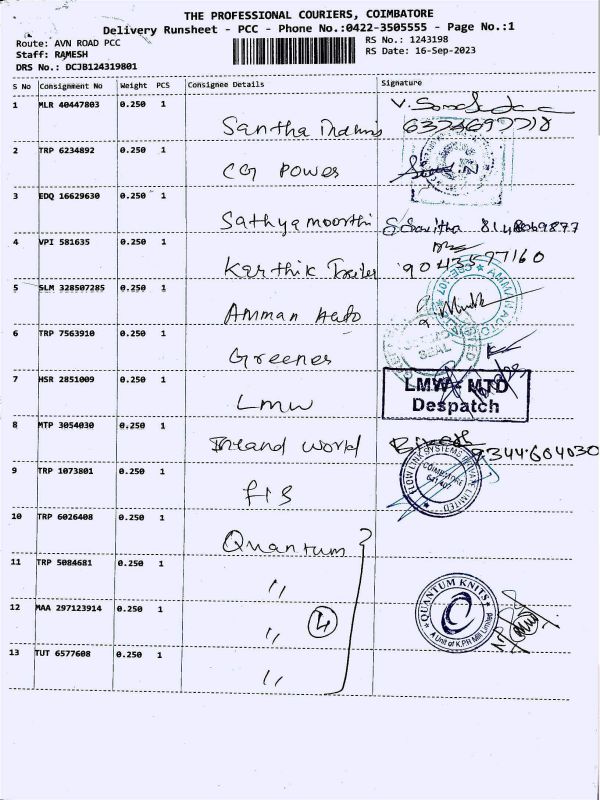 THE PROFESSIONAL COURIERS, COIMBATORE
Delivery Runsheet - PCC - Phone No.:0422-3505555 - Page No.:1
Route: AVN ROAD PCC
Staff: RAMESH
DRS No.: DCJB124319801
RS No.: 1243198
RS Date: 16-Sep-2023
S No Consignment No Weight PCS Consignee Details Signature
1 MLR 40447803 0.250 1
Santha
2 TRP 6234892 0.250 1
CG Power
3 EDQ 16629630 0.250 1
Sathyamoorthi
4 VPI 581635 0.250 1
Karthik 9043597160
5 SLM 328507285 0.250 1
Amman Auto
AMMAN AUTO
6 TRP 7563910 0.250 1
Greenes
SEAL
7 HSR 2851009 0.250 1
LMW
LMW - MTD
Despatch
8 MTP 3054030 0.250 1
Inland World 9344604030
9 TRP 1073801 0.250 1
FLS
FLOW LINK SYSTEMS PRIVATE LIMITED
COIMBATORE
641 407
10 TRP 6026408 0.250 1
Quantum
11 TRP 5084681 0.250 1
"
12 MAA 297123914 0.250 1
" 4
QUANTUM KNITS
A Unit of K.P.R Mill Limited
13 TUT 6577608 0.250 1
"